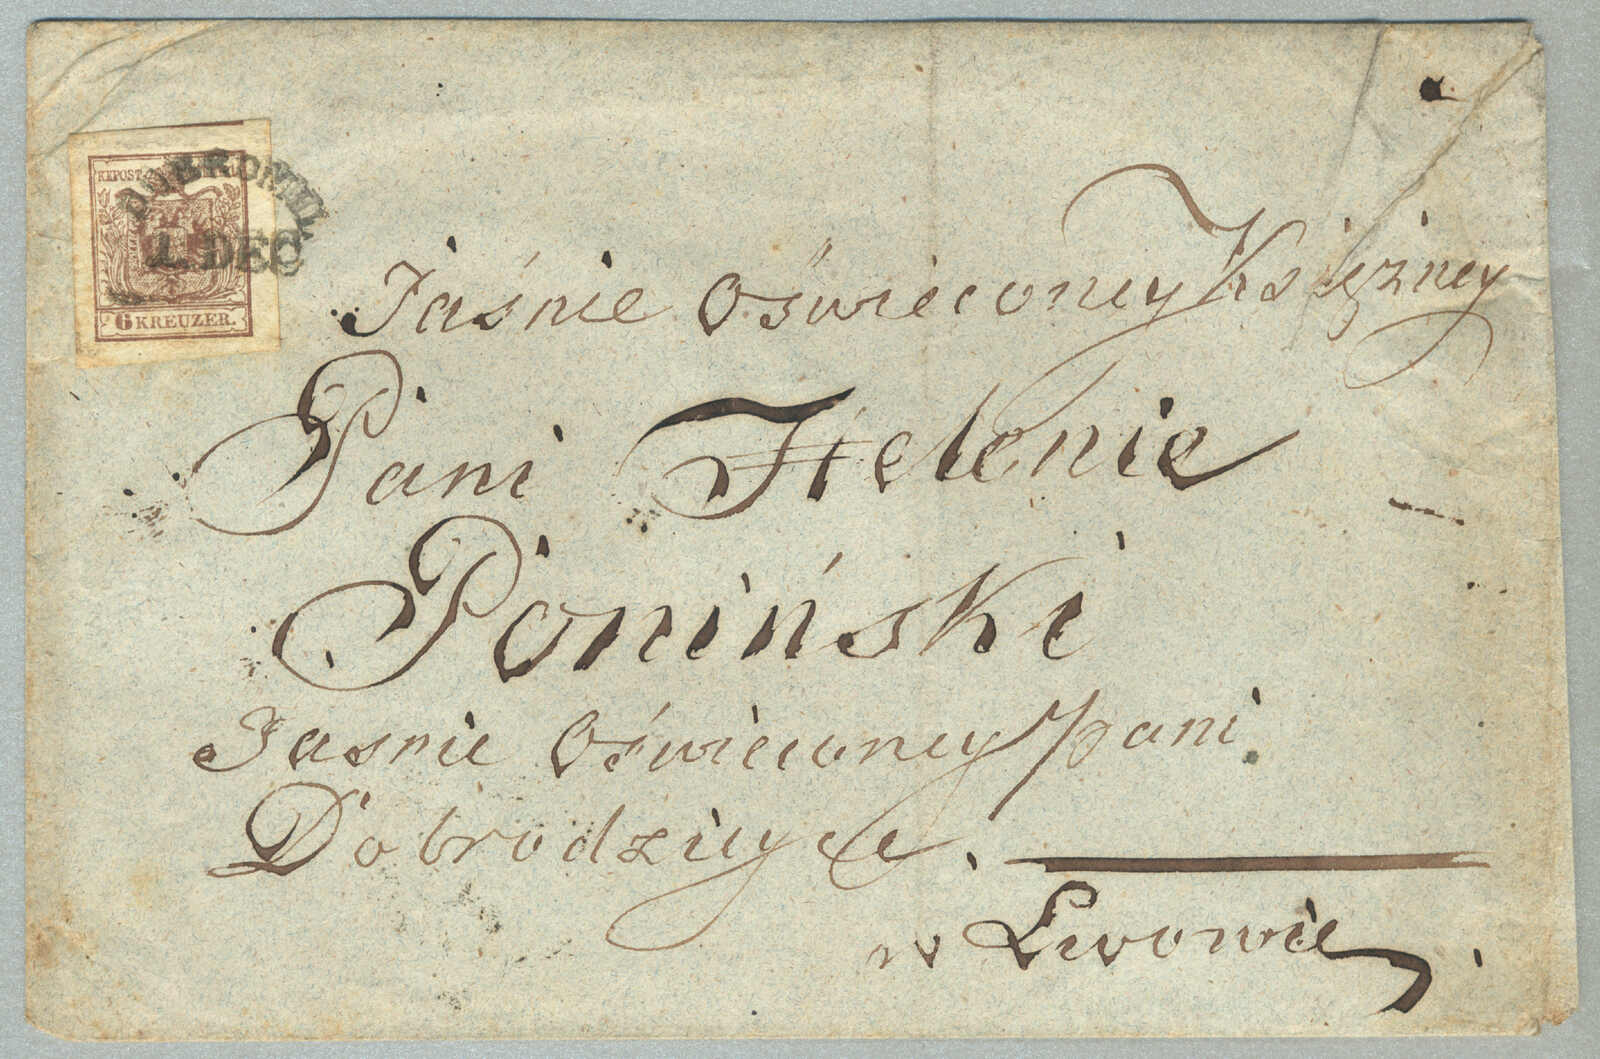 KKPOST-
DOBROMIL.
1. DEC
6 KREUZER.
Jaśnie Oświeconey Księżney
Pani Helenie
Poniński
Jasnie Oświeconey Pani
Dobrodziyce.
w Lwowie.